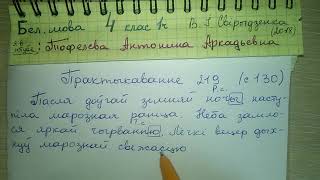 Бел. мова 4 клас 1ч В. І. Свірыдзенка
(2018)
Тофелева Антонина Аркадьевна
Практыкаванне 219 (с 130)
Р.с.
Пасля доўгай зимняй но́чы насту-
піла марозная раніца. Неба занялo-
ся яркай чырванню. Лёгкі вецер дых-
нуў марознай свежасцю